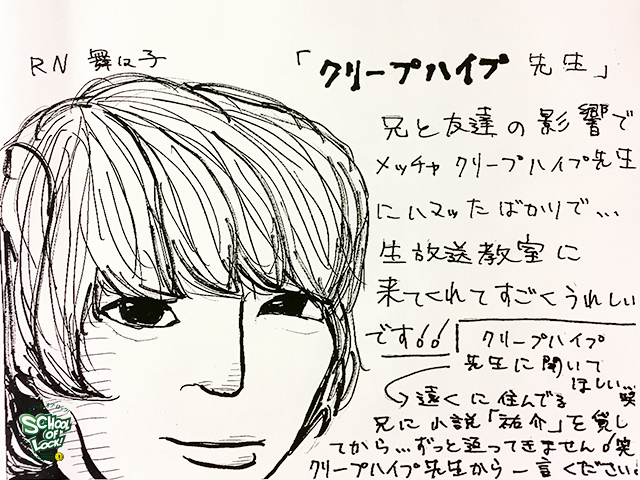 RN 舞は子
「クリープハイプ 先生」
兄と友達の影響で
メッチャ クリープハイプ先生
にハマッたばかりで...
生放送教室に
来てくれてすごくうれしい
です!!
クリープハイプ
先生に聞いて
ほしい... 笑
遠くに住んでる
兄に小説「祐介」を貸し
てから...ずっと返ってきません!笑
クリープハイプ先生から一言ください。
SCHOOL
OF
LOCK!